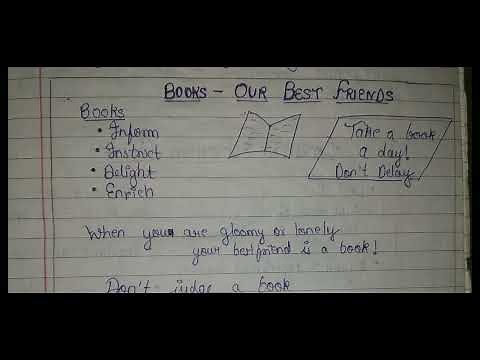 BOOKS - OUR BEST FRIENDS
Books
• Inform
• Instruct
• Delight
• Enrich
Take a book
a day!
Don't Delay
When you are gloomy or lonely
your bestfriend is a book!
Don't judge a book